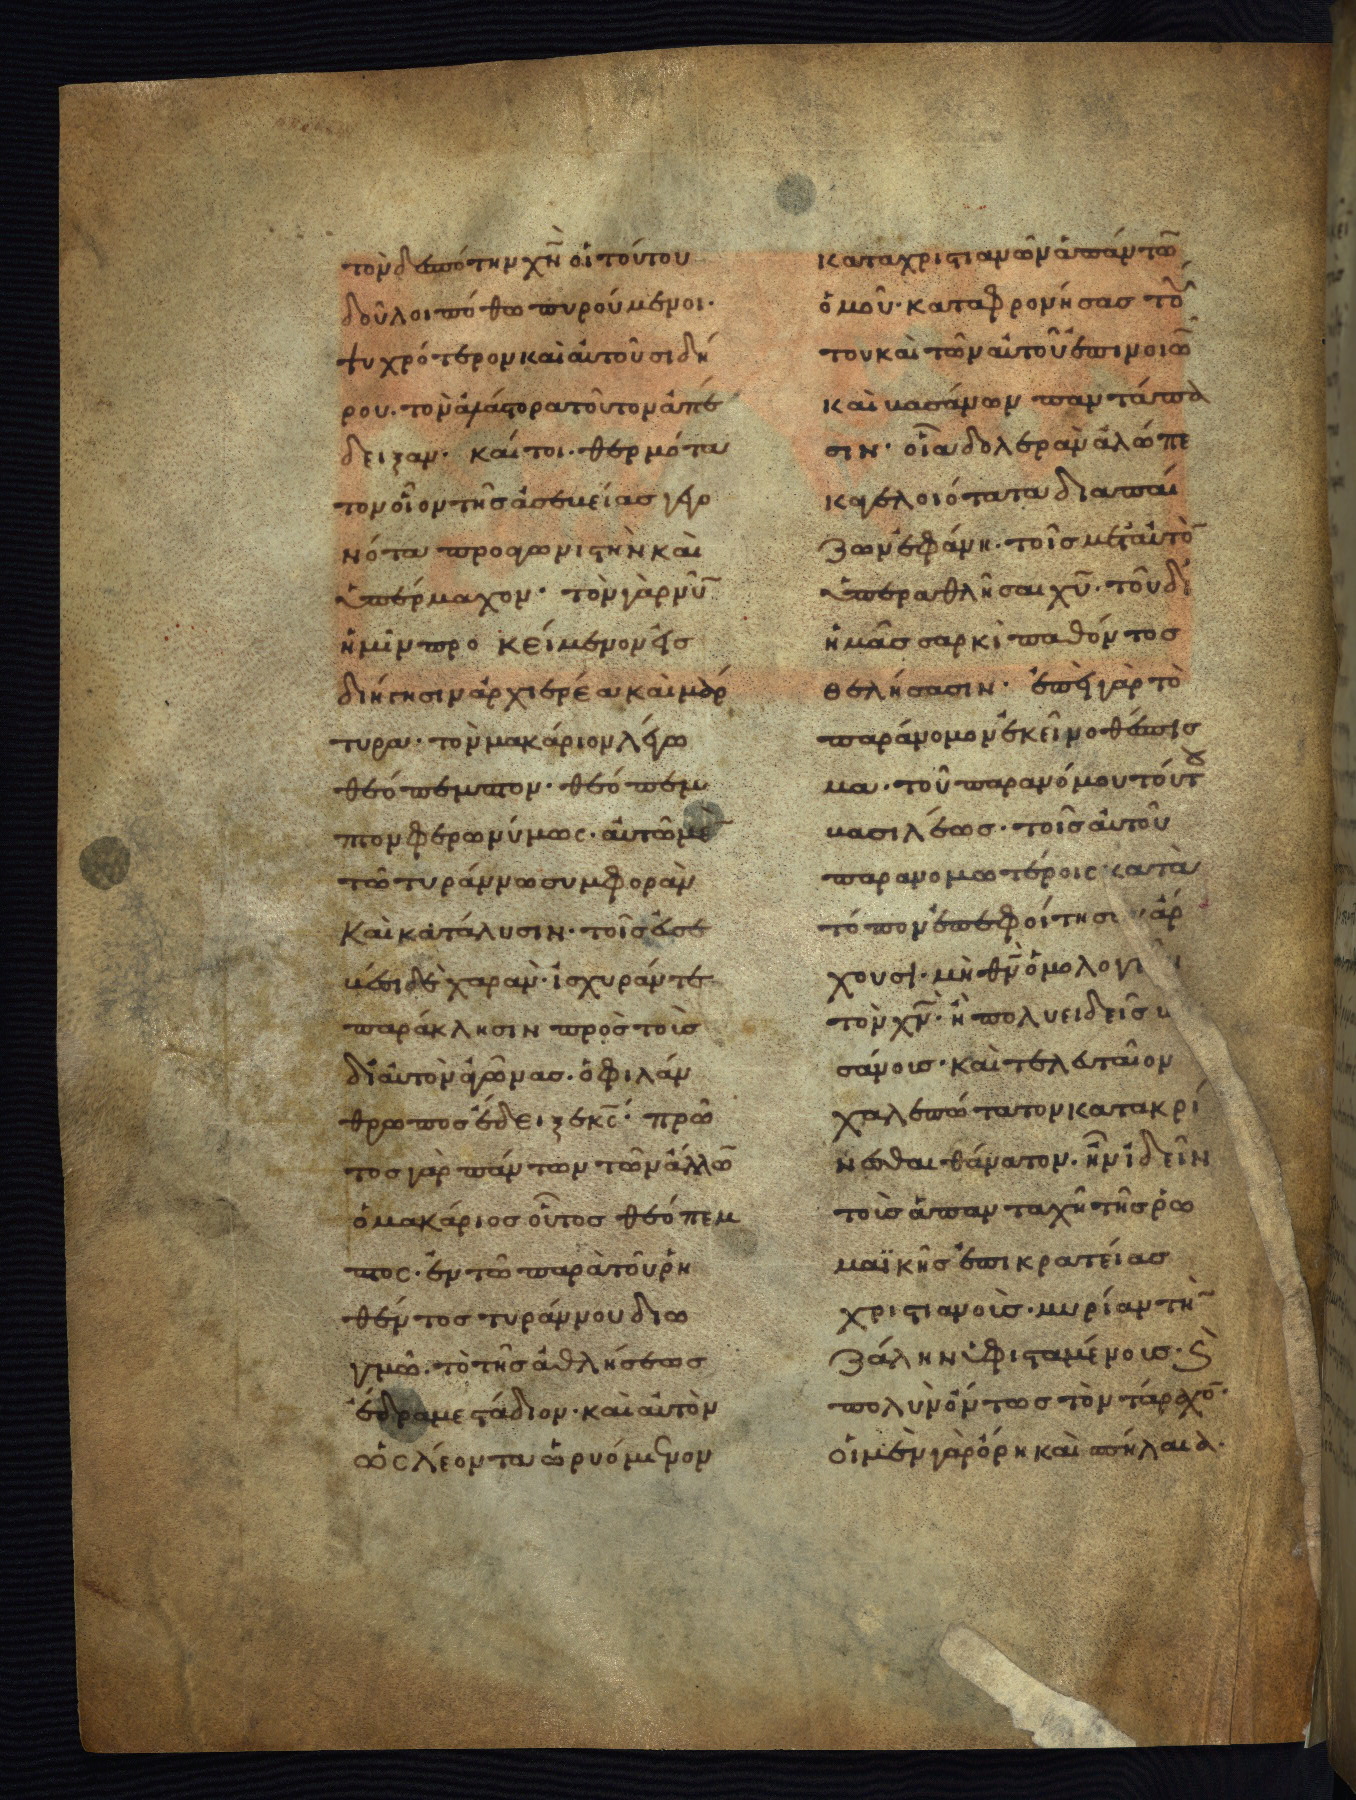 τὸν δεσπότην χν̅ οἱ τούτου
δοῦλοι πόθω πυρούμενοι·
ψυχρότερον καὶ αὐτοῦ σιδή
ρου· τὸν ἀλάστορα τοῦτον ἀπέ
δειξαν· καίτοι· θερμότα
τον οἷον τῆς ἀσεβείας γεγο
νότα προαγωνιστὴν καὶ
ὑπέρμαχον· τὸν γὰρ νῦ̅
ἡμῖν προκείμενον εἰς
διήγησιν ἀρχιερέα καὶ μάρ
τυρα· τὸν μακάριον λέγω
θεόπεμπτον· θεόπεμ
πτον φερωνύμως· αὐτῶ με̅
τῶ τυράννω συμφορὰν
καὶ κατάλυσιν· τοῖς εὐσε
βέσι δὲ χαρὰν· ἰσχυράν τε
παράκλησιν πρὸς τοὺς
δι' αὐτὸν ἀγῶνας· ὁ φιλάν
θρωπος ἔδειξε κς̅· πρῶ
τος γὰρ πάντων τῶν ἄλλω̅
ὁ μακάριος οὗτος θεόπεμ
πτος· ἐν τῶ παρὰ τοῦ ῥη
θέντος τυράννου διω
γμῶ· τὸ τῆς ἀθλήσεως
ἔδραμε στάδιον· καὶ αὐτὸν
ὡς λέοντα ὠρυόμενον
κατὰ χριστιανῶν ἁπάντω̅
ὁμοῦ· καταφρονήσας τού
του καὶ τῶν αὐτοῦ ἐπινοιῶ̅
καὶ βασάνων παντάπα
σιν· οἷα δολερὰν ἀλώπε
κα γελοιότατα διαπαί
ζων ἐφάνη· τοῖς μετ' αὐτὸ̅
ὑπεραθλῆσαι χυ̅· τοῦ δι'
ἡμᾶς σαρκὶ παθόντος
θελήσασιν· ἐπεὶ γὰρ τὸ
παράνομον ἐκεῖνο θέσπισ
μα· τοῦ παρανόμου τούτου
βασιλέως· τοῖς αὐτοῦ
παρανομωτέροις κατὰ
τόπον ἐπεφοίτησι ἄρ
χουσι· μὴ θν̅ ὁμολογ
τὸν χν̅· ἢ πολυειδεῖς β
σάνοις· καὶ τελευταῖον
χαλεπώτατον κατακρί
νεσθαι θάνατον· ἦν ἰδεῖν
τοῖς ἁπανταχῆ τῆς ῥω
μαϊκῆς ἐπικρατείας
χριστιανοῖς· μυρίαν τὴ̅
ζάλην ὑφισταμένοις· ϗ
πολὺν ὄντως τὸν τάραχο̅·
οἱ μὲν γὰρ ὄρη καὶ σπήλαια·